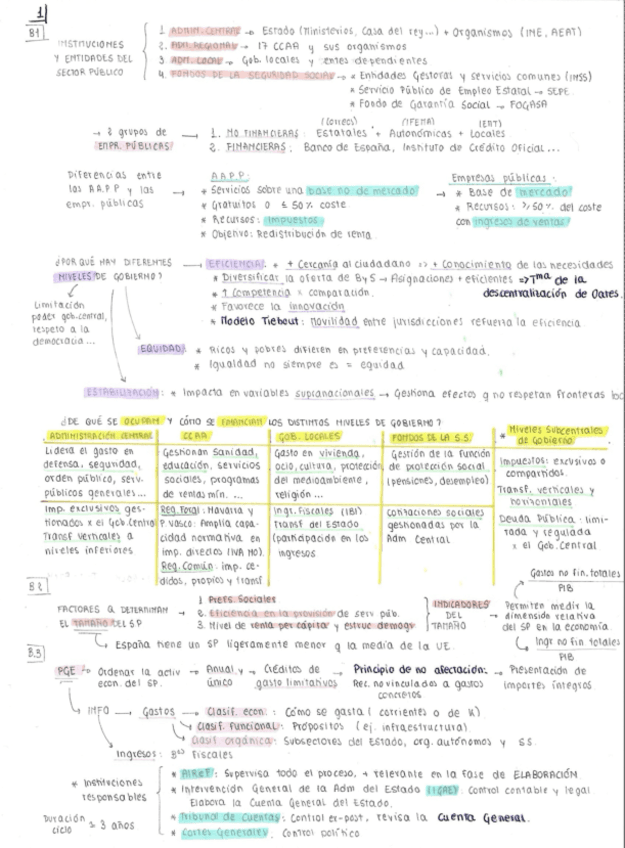 1
B1
INSTITUCIONES Y ENTIDADES DEL SECTOR PÚBLICO
1. ADMIN. CENTRAL → Estado (Ministerios, Casa del rey...) + Organismos (INE, AEAT)
2. ADM. REGIONAL → 17 CCAA y sus organismos
3. ADM. LOCAL → Gob. locales y entes dependientes
4. FONDOS DE LA SEGURIDAD SOCIAL → * Entidades Gestoras y servicios comunes (INSS)
* Servicio Público de Empleo Estatal → SEPE
* Fondo de Garantía Social → FOGASA
(Correos) (IFEMA) (EMT)
→ 2 grupos de EMPR. PÚBLICAS
1. NO FINANCIERAS: Estatales + Autonómicas + Locales
2. FINANCIERAS: Banco de España, Instituto de Crédito Oficial...
Diferencias entre las AA.PP y las empr. públicas →
A.A.P.P:
* Servicios sobre una base no de mercado
* Gratuitos o ≤ 50% coste
* Recursos: Impuestos
* Objetivo: Redistribución de renta
Empresas públicas:
* Base de mercado
* Recursos: ≥/50% del coste
con ingresos de ventas
¿POR QUÉ HAY DIFERENTES NIVELES DE GOBIERNO?
Limitación poder gob. central, respeto a la democracia...
EFICIENCIA: * + Cercanía al ciudadano => + Conocimiento de las necesidades
* Diversificar la oferta de B y S → Asignaciones + eficientes => Tma de la descentralización de Oates.
* ↑ Competencia = comparación.
* Favorece la innovación
* Modelo Tiebout: movilidad entre jurisdicciones refuerza la eficiencia.
EQUIDAD: * Ricos y pobres difieren en preferencias y capacidad.
* Igualdad no siempre es = equidad
ESTABILIZACIÓN: * Impacta en variables supranacionales → Gestiona efectos q no respetan fronteras loc
¿DE QUÉ SE OCUPAN Y CÓMO SE FINANCIAN LOS DISTINTOS NIVELES DE GOBIERNO?
ADMINISTRACIÓN CENTRAL
Lidera el gasto en defensa, seguridad, orden público, serv. públicos generales...
Imp. exclusivos gestionados x el Gob. Central
Transf verticales a niveles inferiores
CCAA
Gestionan Sanidad, educación, servicios sociales, programas de rentas mín. ...
Reg. Foral: Navarra y P. Vasco: Amplia capacidad normativa en imp. directos (IVA NO).
Reg. Común: imp. cedidos, propios y transf
GOB. LOCALES
Gasto en vivienda, ocio, cultura, protección del medioambiente, religión...
Ingr. Fiscales (IBI)
Transf del Estado (participación en los ingresos
FONDOS DE LA S.S.
Gestión de la función de protección social. (pensiones, desempleo)
Cotizaciones sociales gestionadas por la Adm Central
* Niveles Subcentrales de Gobierno:
Impuestos: exclusivos o compartidos.
Transf. verticales y horizontales
Deuda Pública: limitada y regulada x el Gob. Central
B.2
FACTORES Q DETERMINAN EL TAMAÑO DEL SP →
1. Prefs. Sociales
2. Eficiencia en la provisión de serv púb.
3. Nivel de renta per cápita y estruc demogr
↳ España tiene un SP ligeramente menor q la media de la UE.
INDICADORES DEL TAMAÑO → Permiten medir la dimensión relativa del SP en la economía.
Gastos no fin. totales
PIB
Ingr no fin totales
PIB
B.3
PGE → Ordenar la activ econ. del SP. → Anual y único → Créditos de gasto limitativos → Principio de no afectación: Rec. no vinculados a gastos concretos → Presentación de importes íntegros.
INFO → Gastos → Clasif. econ.: Cómo se gasta (corrientes o de K)
↳ Clasif. Funcional: Propósitos (ej. infraestructura).
↳ Clasif. Orgánica: Subsectores del Estado, org. autónomos y SS.
Ingresos: Fiscales
* Instituciones responsables
* AIReF: Supervisa todo el proceso, + relevante en la Fase de ELABORACIÓN
* Intervención General de la Adm del Estado (IGAE): Control contable y legal
Elabora la Cuenta General del Estado.
* Tribunal de Cuentas: Control ex-post, revisa la Cuenta General.
* Cortes Generales: Control político
Duración ciclo ≈ 3 años